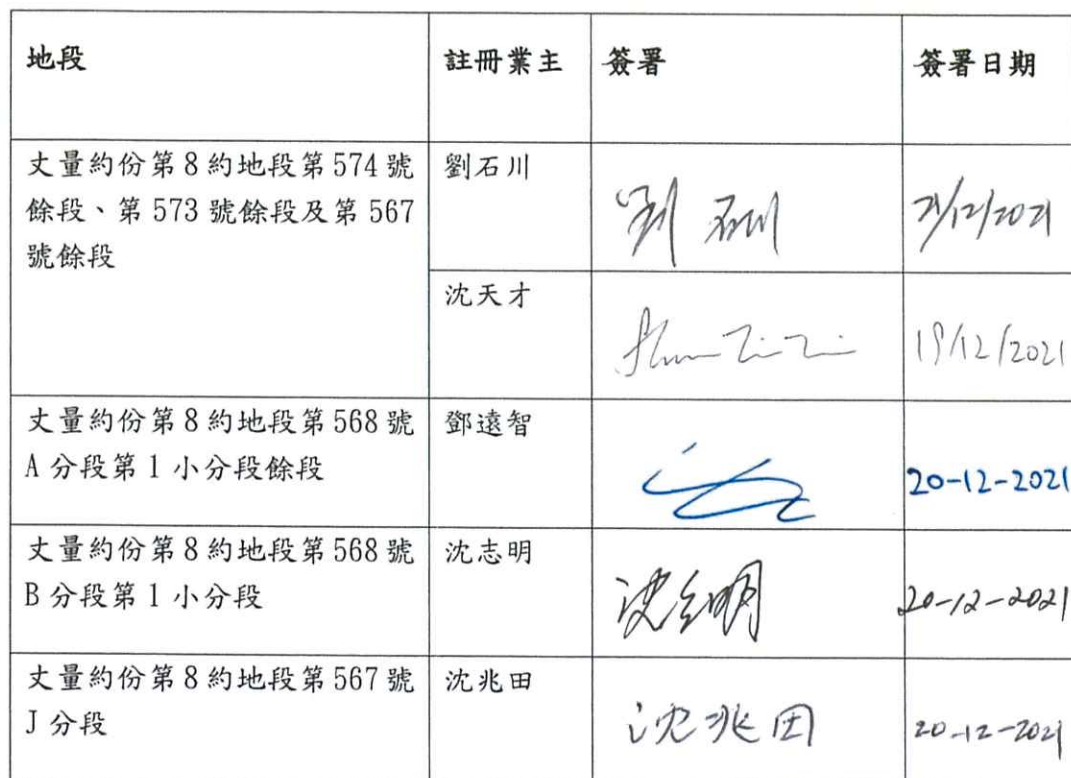 地段 註冊業主 簽署 簽署日期
丈量約份第8約地段第574號 劉石川
餘段、第573號餘段及第567 劉石川 21/12/2021
號餘段
沈天才
19/12/2021
丈量約份第8約地段第568號 鄧遠智
A分段第1小分段餘段 20-12-2021
丈量約份第8約地段第568號 沈志明
B分段第1小分段 沈志明 20-12-2021
丈量約份第8約地段第567號 沈兆田
J分段 沈兆田 20-12-2021